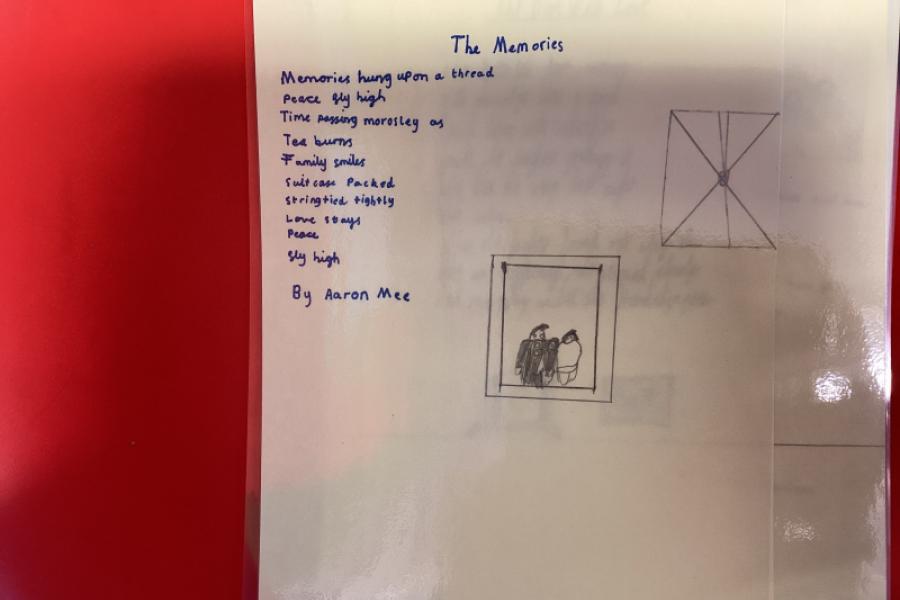 The Memories
Memories hung upon a thread
Peace fly high
Time passing morosley as
Tea burns
Family smiles
suitcase Packed
stringtied tightly
Love stays
Peace
fly high
By Aaron Mee